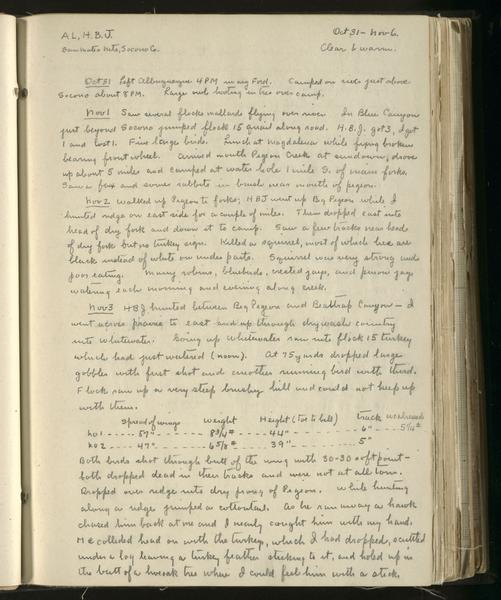 A.L., H.B.J. Oct 31 - Nov 6.
San Mateo Mts, Socorro Co. Clear & warm.
Oct 31 Left Albuquerque 4 PM in my Ford. Camped on river just above
Socorro about 8 PM. Large owl hooting in tree over camp.
Nov 1 Saw several flocks mallards flying over river. In Blue Canyon
just beyond Socorro jumped flock 15 quail along road. H.B.J. got 3, I got
1 and lost 1. Fine large birds. Lunch at Magdalena while fixing broken
bearing front wheel. Arrived mouth Pigeon Creek at sundown, drove
up about 5 miles and camped at water hole 1 mile S. of main forks.
Saw a fox and some rabbits in brush near mouth of pigeon.
Nov 2 Walked up Pigeon to forks; HBJ went up Big Pigeon while I
hunted ridge on east side for a couple of miles. Then dropped east into
head of dry fork and down it to camp. Saw a few tracks near head
of dry fork but no turkey sign. Killed a squirrel, most of which here are
black instead of white on under parts. Squirrel was very strong and
poor eating. Many robins, bluebirds, crested jays, and pinon jays
watering each morning and evening along creek.
Nov 3 HBJ hunted between Big Pigeon and Beartrap Canyon - I
went across prairie to east and up through dry wash country
into Whitewater. Going up Whitewater ran into flock 15 turkey
which had just watered (noon). At 75 yards dropped large
gobbler with first shot and another running bird with third.
Flock ran up a very steep brushy hill and could not keep up
with them.
Spread of wings Weight Height (toe to bill) Track
No 1 ----- 57" ----- 8 3/4 # ----- 44" ----- 6" ----- 5 1/4 #
No 2 ----- 47" ----- 6 5/8 # ----- 39" ----- 5"
Both birds shot through butt of the wing with 30-30 soft point -
both dropped dead in their tracks and were not at all torn.
Dropped over ridge into dry prong of Pigeon. While hunting
along a ridge jumped a cottontail. As he ran away a hawk
chased him back at me and I nearly caught him with my hand.
He collided head on with the turkey, which I had dropped, scuttled
under a log leaving a turkey feather sticking to it, and holed up in
the butt of a live oak tree where I could feel him with a stick.